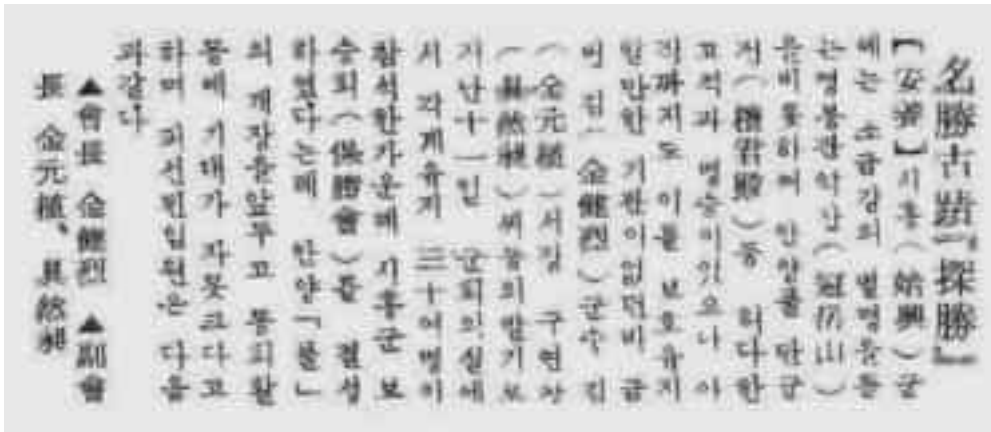 名勝古蹟『探勝』
【安養】시흥(始興)군
에는 소금강의 별명을들
는명봉관악산(冠岳山)
을비롯하여 안양풀 단군
전(檀君殿)등 허다한
고적과 명승이있으나 아
직까지도 이를 보호유지
할만한 기관이없던비 금
번 김 (金健烈)군수 김
(金元植)서장 구연창
(具然昶)씨등의발기로
지난十一일 군회의실에
서 각계유지 三十여명이
참석한가운데 시흥군 보
승회(保勝會)를 결성
하였다는데 안양「풀」
의 개장을앞두고 동회활
동에 기대가 자못크다고
하며 피선된임원은 다음
과같다
▲會長 金健烈 ▲副會
長 金元植、具然昶